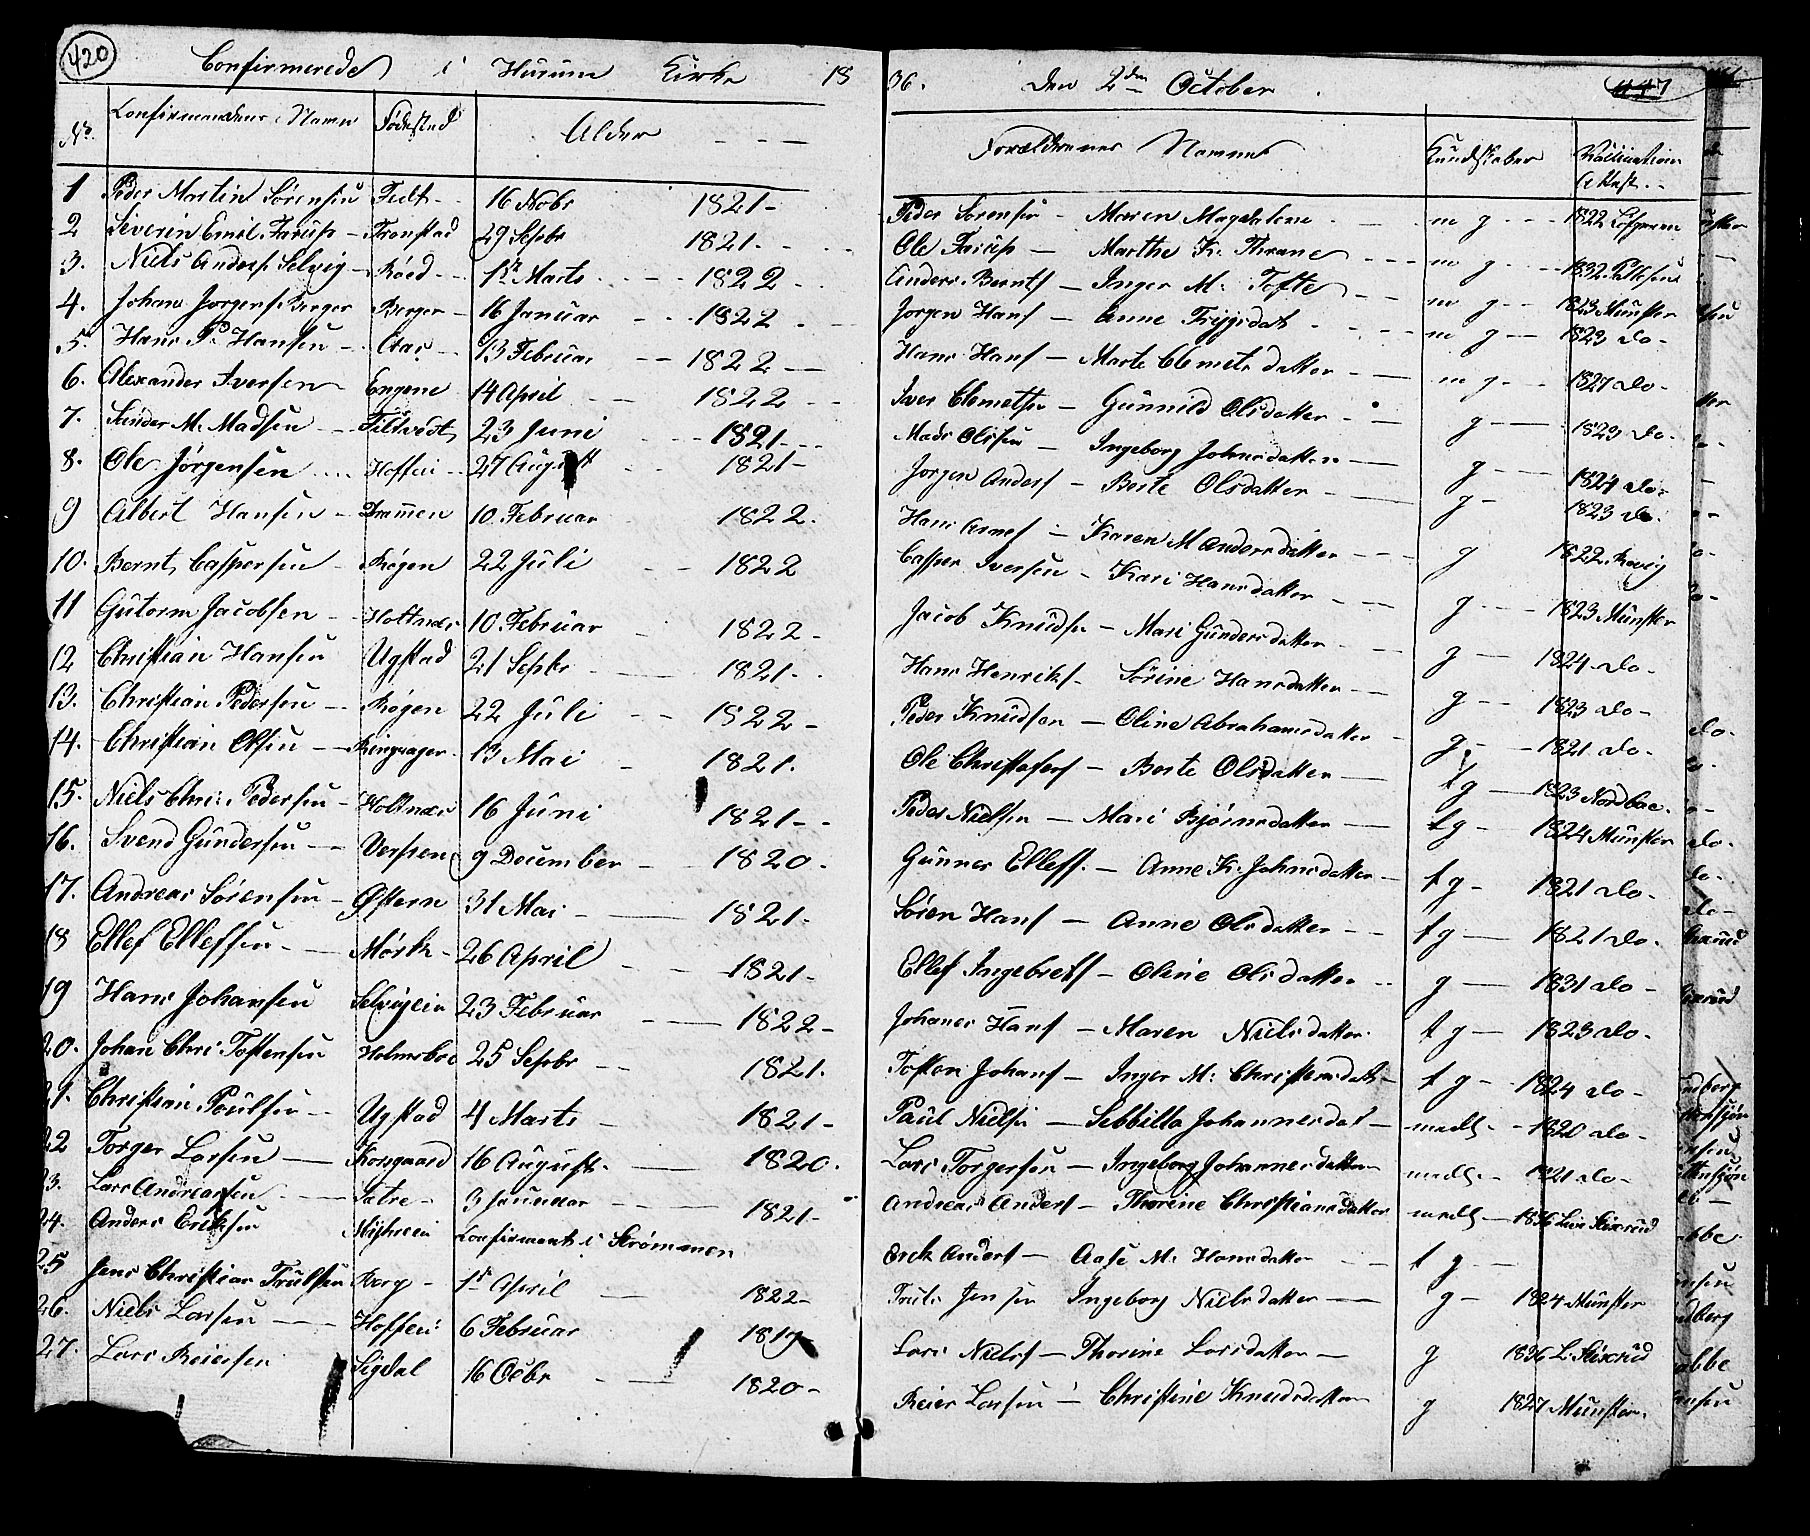 420
Confirmerede i Hurum Kirke 1836. den 2den October
447
No. Confirmandens Navne Fødested Alder Forældrenes Navne Kundskaber Vaccinations Attest
1 Peder Martin Sørensen Tedt 16 Nobr 1821 Peder Sørensen - Maren Magdalena m g 1822
2 Severin Emil Farup Tronstad 29 Sepbr 1821 Ole Farup - Marthe K. Thrane m g 1832
3. Niels Anders. Selvig Røed 1 Marts 1822 Anders Bernts - Inger M. Tofte m g 1823 Münster
4. Johan Jørgens. Berger Berger 16 Januar 1822 Jørgen Hans - Anne Trygsdat m g 1823 do
5. Hans P. Hansen Aas 13 Februar 1822 Hans Hans - Marte Clemetsdatter m g 1827 do
6. Alexander Iversen Engene 14 April 1822 Iver Clemetsen - Gunnild Olsdatter g 1823 do
7. Gunder M. Madsen Filtvedt 23 Juni 1821 Mads Olssen - Ingeborg Johnsdatter g 1824 do
8. Ole Jørgensen Hoffen 27 August 1821 Jørgen Anders - Berte Olsdatter g 1823 do
9 Albert Hansen Drammen 10 Februar 1822. Hans Arnes - Karen M Andersdatter g 1822
10. Bernt Caspersen Røgen 22 Juli 1822 Casper Iversen - Kari Hansdatter g 1823 Münster
11 Gutorm Jacobsen Holtnæs 10 Februar 1822 Jacob Knudsen - Mari Gundersdatter g 1824 do
12 Christian Hansen Ugstad 21 Sepbr 1821 Hans Henriks - Sørine Hansdatter g 1823 do
13. Christian Pedersen Røgen 22 Juli 1822 Peder Knudsen - Oline Abrahamsdatter g 1821 do
14. Christian Olsen Ringsager 13 Mai 1821. Ole Christofers - Berte Olsdatter t g 1823 Nordbae
15. Niels Chri: Pedersen Holtnæs 16 Juni 1821 Peder Nielsen - Mari Bjørnsdatter t g 1824 Münster
16. Svend Gundersen Verpen 9 December 1820 Gunner Ellefs. - Anne K. Johnsdatter t g 1821 do
17. Andreas Sørensen Østern 31 Mai 1821 Søren Hans - Anne Olsdatter t g 1821 do
18 Ellef Ellefsen Mørk 26 April 1821 Ellef Ingebrets - Oline Olsdatter g 1831 do
19 Hans Johansen Selvigein 23 Februar 1822 Johanes Hans - Maren Nielsdatter t g 1823 do
20. Johan Chri Toftensen Holmsboe 25 Sepbr 1821. Toften Johans - Inger M: Christensdatt t g 1824 do
21. Christian Poulsen Ugstad 4 Marts 1821 Paul Nielsen - Sebbilla Johannesdat mdl 1820 do
22 Torger Larsen Korsgaard 16 August 1820. Lars Torgersen - Ingeborg Johannesdatter mdl 1821 do
23. Lars Andreassen Satre 3 Januar 1821 Andreas Anders - Thorine Christiansdatter mdl 1836
24. Anders Eriksen Confirmert i Strømmen Erik Anders - Aase M: Hansdatter t g
25 Jens Christian Trulsen Berg 1 April 1822 Truls Jensen Ingeborg Nielsdatter g 1824 Münster
26. Niels Larsen Hoffen 6 Februar 1819 Lars Niels - Thorine Larsdatter g 1836
27. Lars Reiersen Sigdal 16 Ocbr 1820 Reier Larsen - Christine Knudsdatter g 1827 Münster